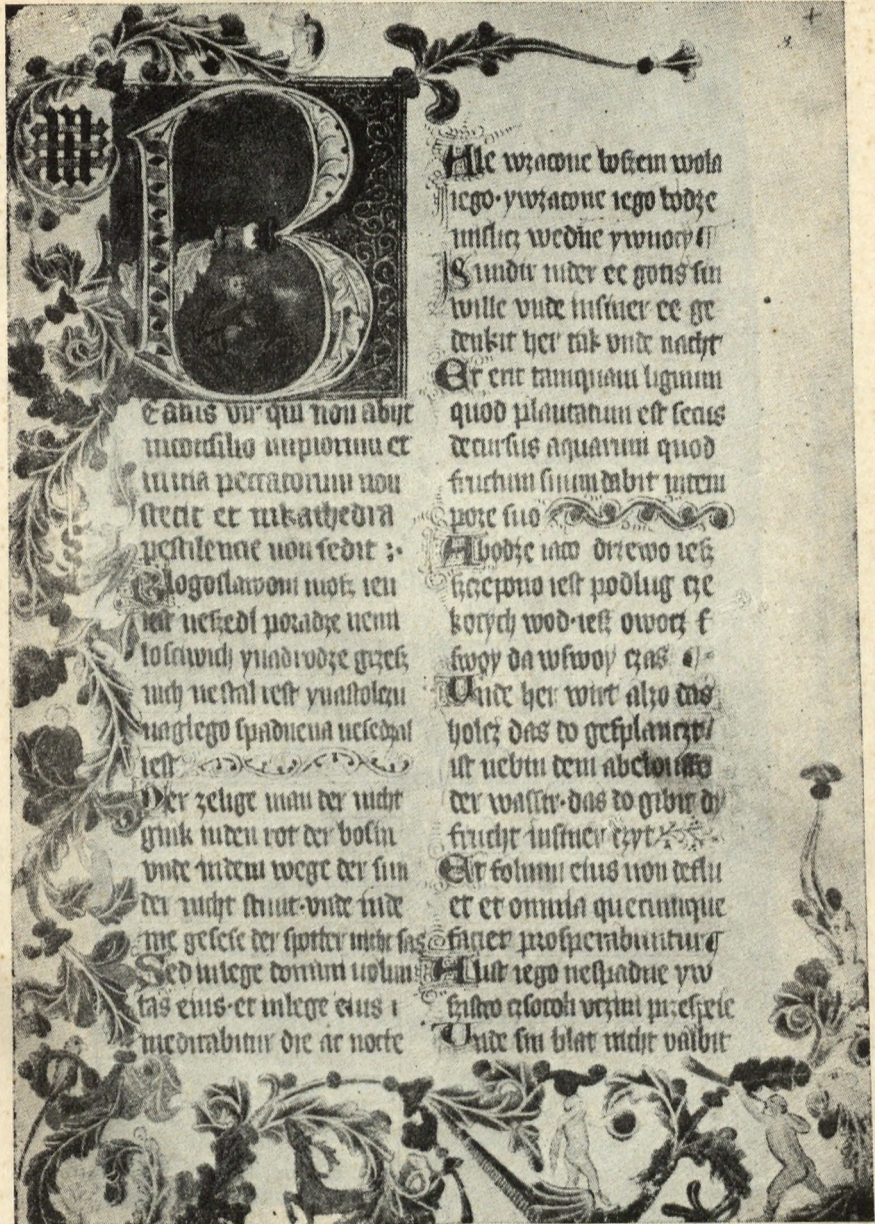 B
eatus vir qui non abijt
inconsilio impiorum et
inuia peccatorum non
stetit et inkathedra
pestilencie non sedit
Blogoslawoni mosz ien
iest neszedl poradze nemi
losciwich ynadrodze grzesz
nich nestal iest ynastolczu
naglego spadnena nesedzal
iest
Der zelige man der nicht
gink inden rot der bosin
vnde indem wege der sun
der nicht stunt·vnde inde
me gesese der spotter nicht sas
Sed inlege domini uolun
tas eius·et inlege eius
meditabitur die ac nocte
Ale wzacone boszem wola
iego·ywzacone iego bodze
misslicz wedne ywnocy
Sundir inder ee gotis sin
wille vnde insiner ee ge
denkit her tak vnde nacht
Et erit tamquam lignum
quod plantatum est secus
decursus aquarum quod
fructum suum dabit intem
pore suo
Abodze iaco drzewo iesz
szczepono iest podlug cze
kocych wod·iesz owocz s
swoy da wswoy czas
Vnde her wirt alzo das
holcz das do gesplanczt
ist nebin dem abelouffe
der wassir·das do gibit di
frucht insiner czyt
Et folium eius non deflu
et et omnia quecumque
faciet prosperabuntur
Alist iego nespadne yw
szistco czsocoli vczini przespeie
Vnde sin blat nicht valbit